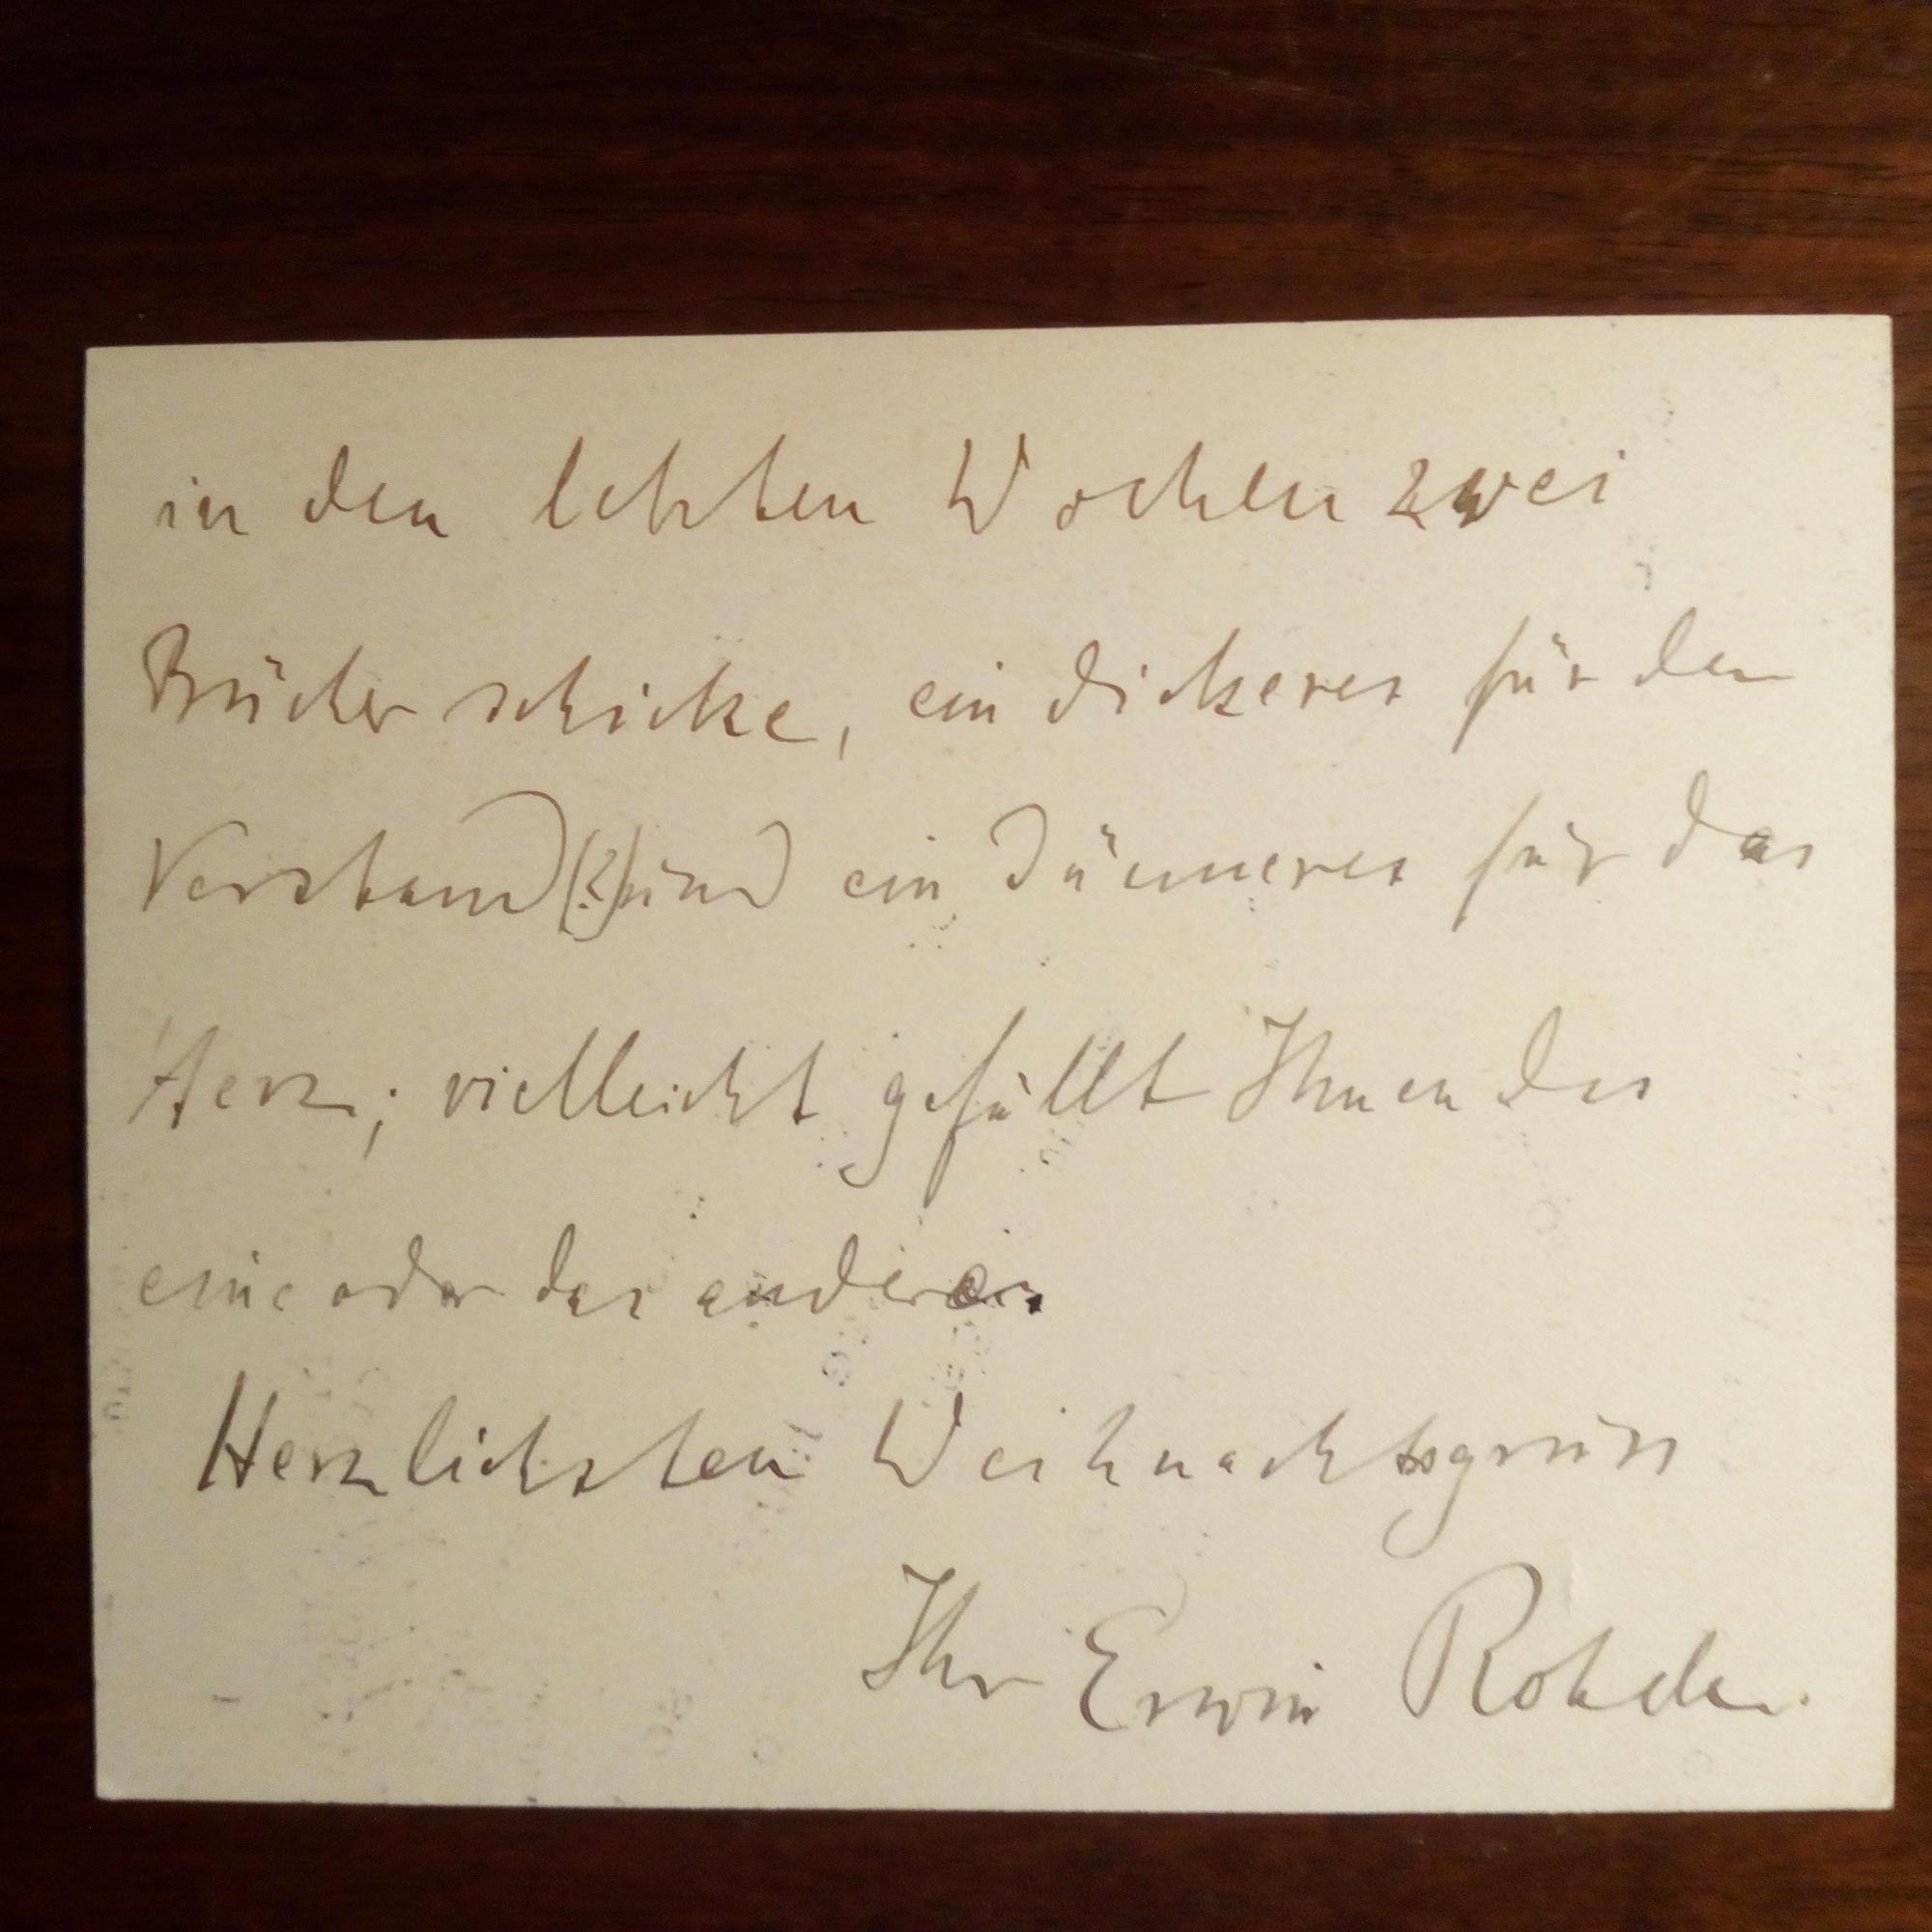 in den letzten Wochen zwei
Bücher schicke, ein dickeres für den
Verstand(?) und ein dünneres für das
Herz; vielleicht gefällt Ihnen das
eine oder das andere.
Herzlichsten Weihnachtsgruss
Ihr Erwin Rohde.